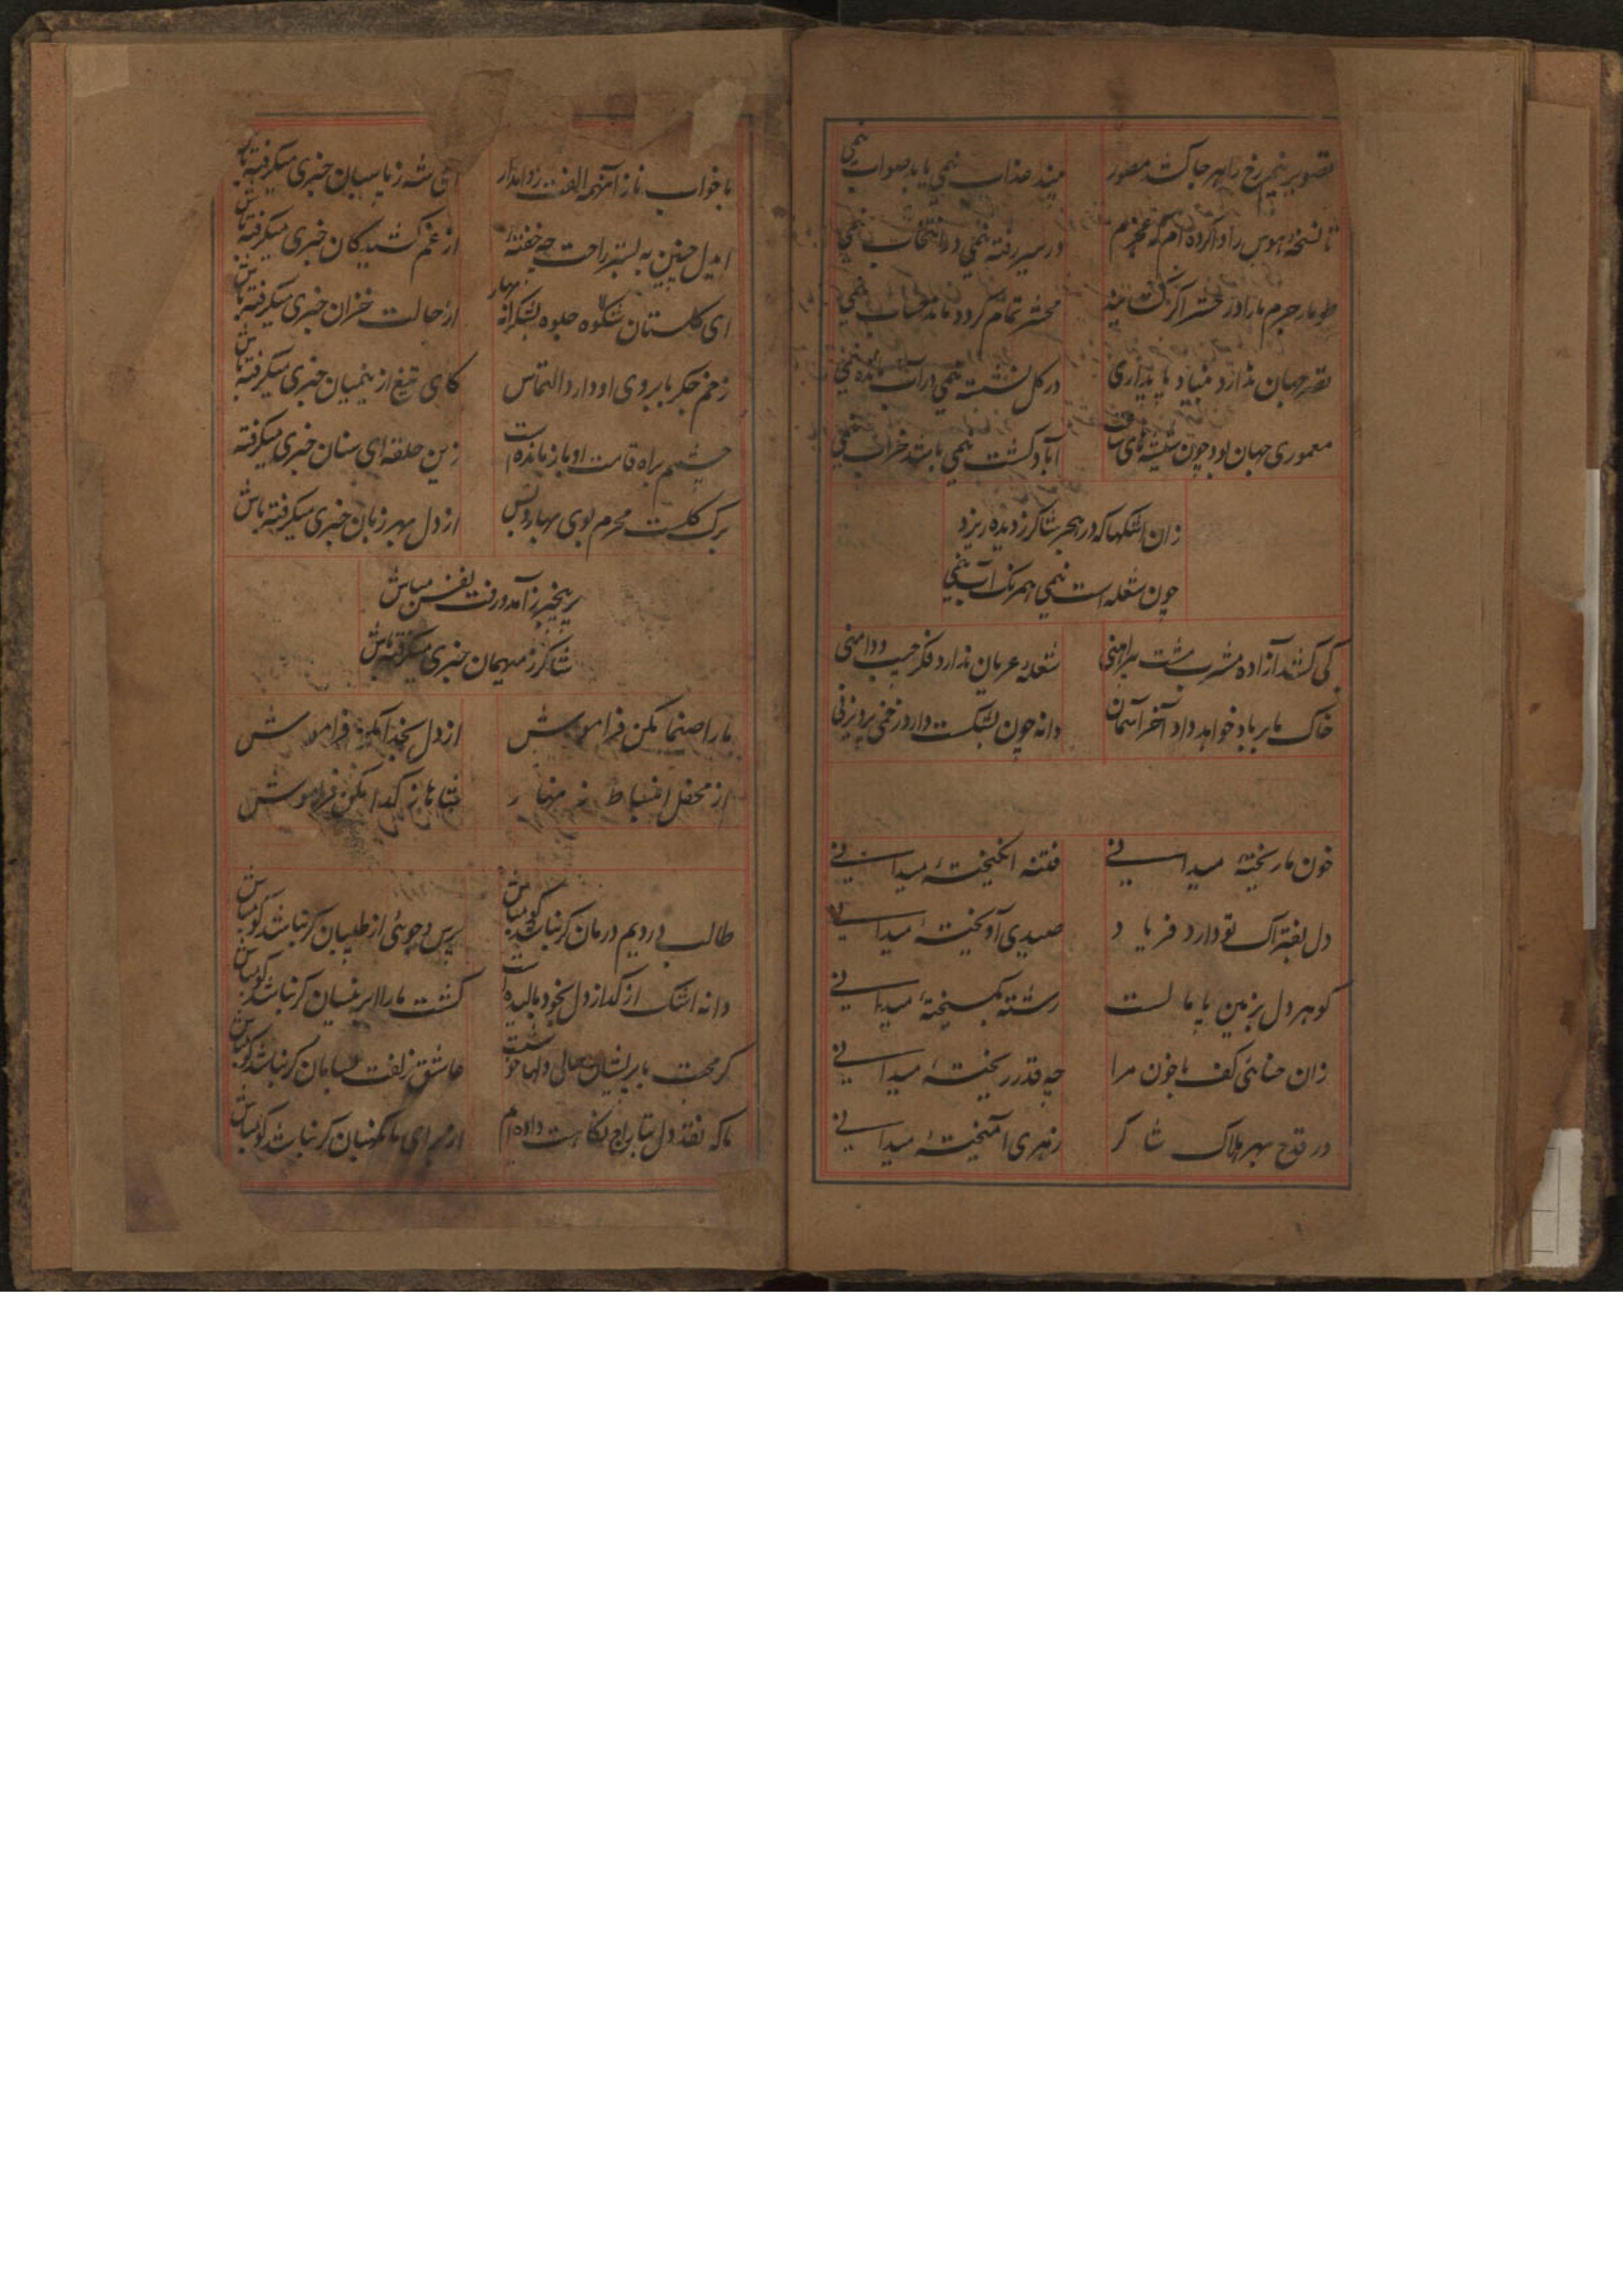 تصویر نیم رخ را هر جا کشد مصور بیند عذاب نیمی یابد صواب نیمی
تا نسخه هوس را وا کرده ام که در سیر رفته نیمی در انتخاب نیمی
طومار جرم ما را در حشر اگر محشر تمام کردد ماند حساب نیمی
قصر جهان ندارد بنیاد پایداری در کل نشسته نیمی در آب نیمی
معموری جهان بود چون شیشه های ساعت آباد کشت نیمی باشد خراب نیمی
زان اشکها که در هجر شاکر ز دیده ریزد
چون شعله است نیمی همرنک آب نیمی
کی کشد آزاده مشرب منت پیراهنی شعله عریان ندارد فکر جیب و دامنی
خاک ما بر باد خواهد داد آخر آسمان دانه چون بشکست دارد زخمی پرویزنی
خون ما ریختهٔ میدانی فتنه انکیختهٔ میدانی
دل بفتراک تو دارد فریاد صیدی آویختهٔ میدانی
کوهر دل بزمین پامالست رشته بکسیختهٔ میدانی
زان حنائی کف با خون مرا چه قدر ریختهٔ میدانی
در قدح بهر هلاک شاکر زهری آمیختهٔ میدانی
با خواب ناز ای شه ز پاسبان خبری میکرفته باش
ایدل چنین به بستر راحت چه خفتهٔ از غم کشیدکان خبری میکرفته باش
ای کلستان شکوه جلوه بهار از حالت خزان خبری میکرفته باش
زخم جکر بابروی او دارد التماس کای تیغ از میان خبری میکرفته باش
چشمم براه قامت او باز مانده است زین حلقه ای سنان خبری میکرفته
برک کلت محرم بوی بهار و بس از دل بهر زبان خبری میکرفته باش
بیخبر ز آمد و رفت نفس مباش
شاکر ز میهمان خبری میکرفته باش
ما را صنما مکن فراموش از دل بخدا مکن فراموش
از محفل انبساط زنهار شاها ز کدا مکن فراموش
طالب دردیم درمان کر نباشد کو مباش پرس و جوئی از طبیبان کر نباشد کو مباش
دانه اشک از کداز دل بخود بالیده است کشت ما را ابر نیسان کر نباشد کو مباش
پریشان حالی دلها عاشق زلفت بسامان کر نباشد کو مباش
ما که نقد دل بتاراج نکاهت داده ایم از برای ما نکهبان کر نباشد کو مباش